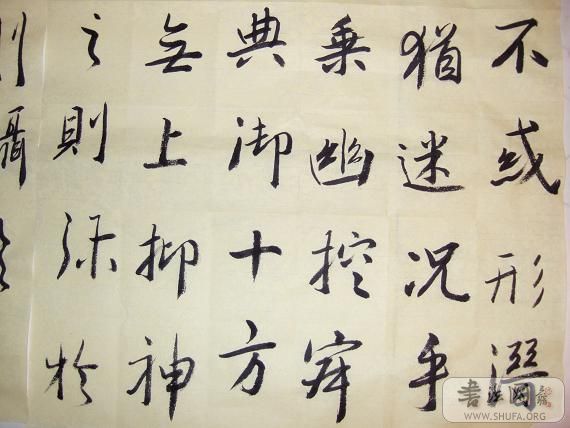 不惑形潛
猶迷況乎
乘幽控寂
典御十方
無上抑神
之則彌於
WWW.SHUFA.ORG